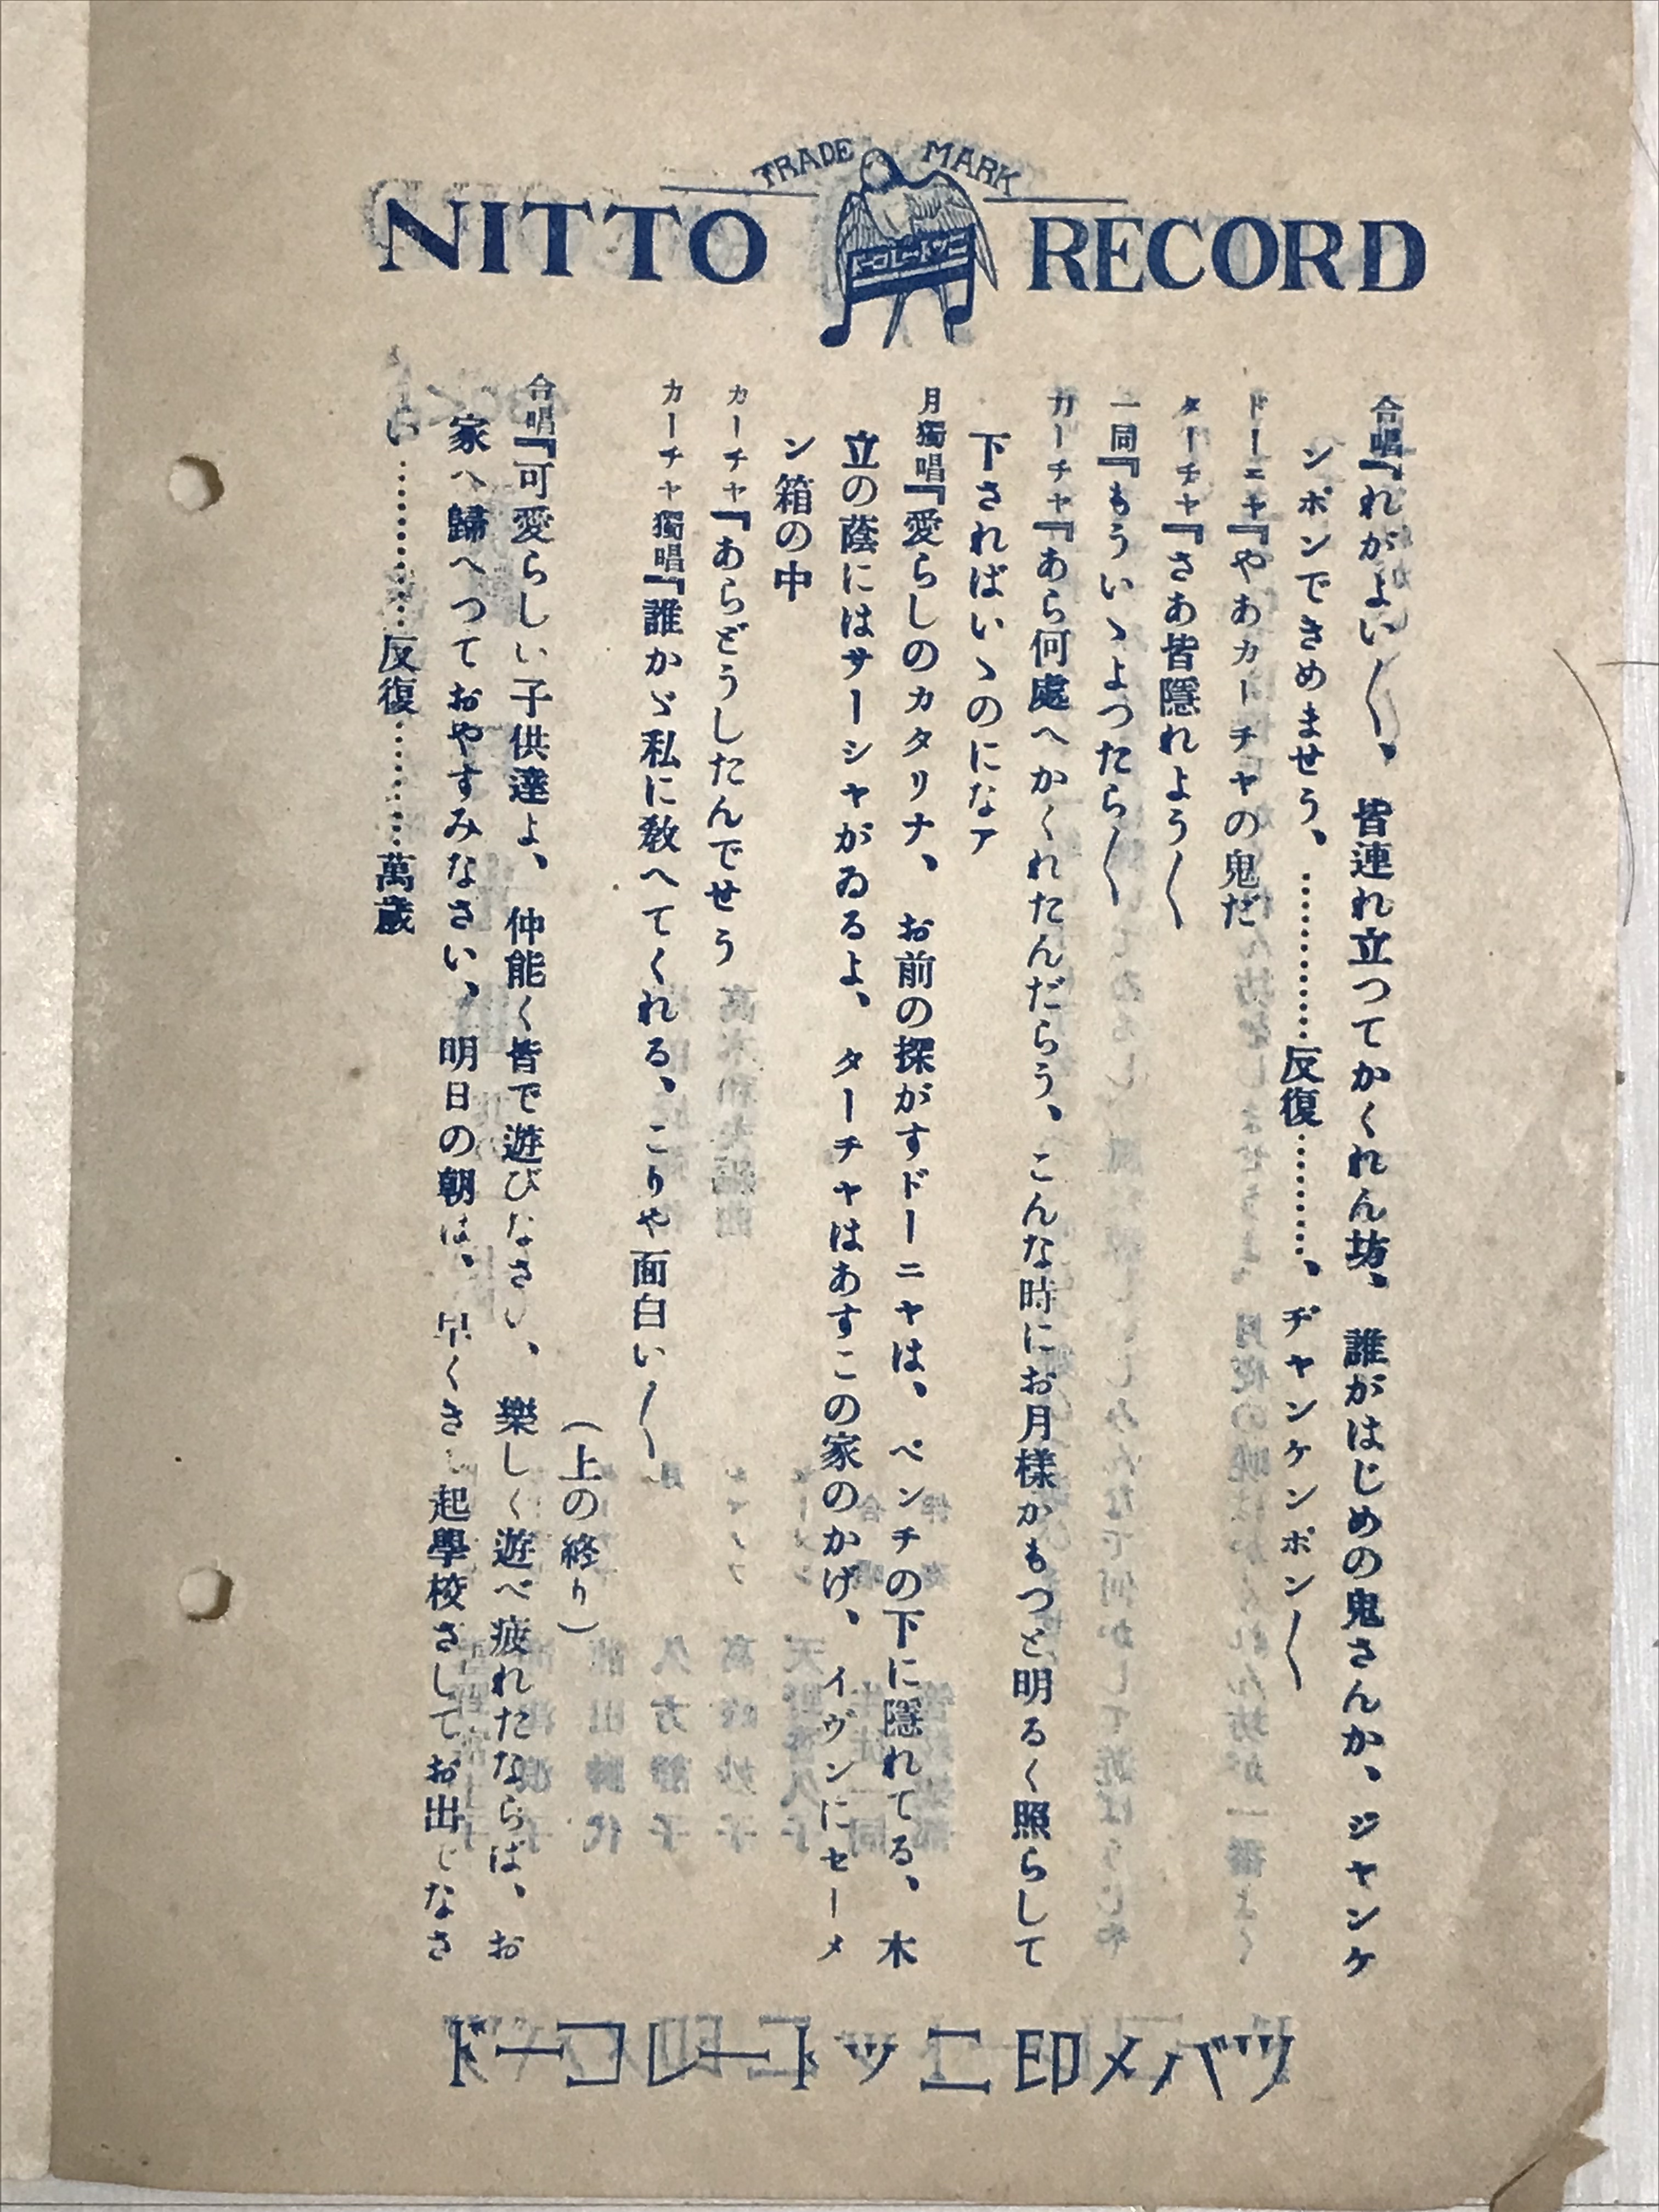 TRADE MARK
NITTO RECORD
ドーコレートツニ
合唱『れがよい〱、皆連れ立つてかくれん坊、誰がはじめの鬼さんか、ジヤンケ
ンポンできめませう、…………反復………、ヂヤンケンポン〱
ドーニヤ『やあカーチヤの鬼だ
ターチヤ『さあ皆隱れよう〱
一同『もういゝよつたら〱
カーチヤ『あら何處へかくれたんだらう、こんな時にお月樣かもつと明るく照らして
下さればいゝのになア
月獨唱『愛らしのカタリナ、お前の探がすドーニヤは、ペンチの下に隱れてる、木
立の蔭にはサーシヤがゐるよ、ターチヤはあすこの家のかげ、イヴンにセーメ
ン箱の中
カーチヤ『あらどうしたんでせう
カーチヤ獨唱『誰かゞ私に敎へてくれる、こりや面白い〱
(上の終り)
合唱『可愛らしい子供達よ、仲能く皆で遊びなさい、樂しく遊べ疲れたならば、お
家へ歸へつておやすみなさい、明日の朝は、早くさ 起學校さしてお出じなさ
い…………反復………萬歲
ドーコレートツニ印メバツ